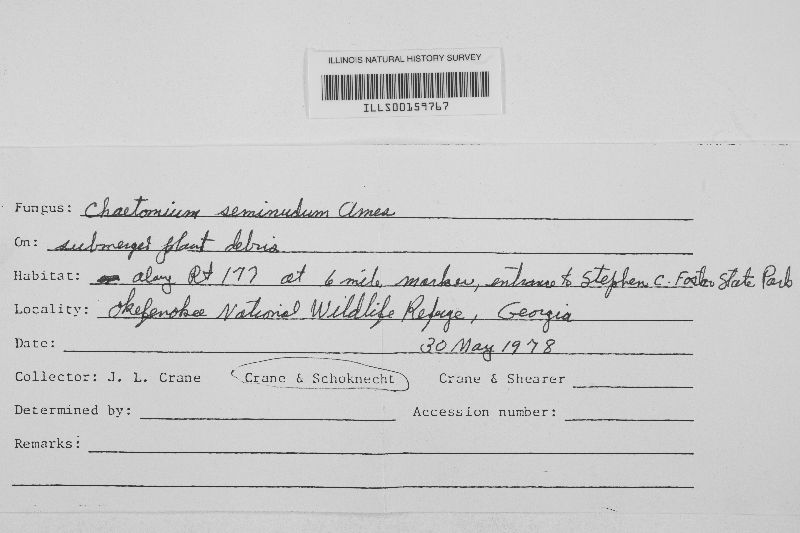 ILLINOIS NATURAL HISTORY SURVEY
ILLS00159767
Fungus: Chaetomium seminudum Ames
On: submerged plant debris
Habitat: along Rt 177 at 6 mile marker, entrance to Stephen C. Foster State Park
Locality: Okefenokee National Wildlife Refuge, Georgia
Date: 30 May 1978
Collector: J. L. Crane Crane & Schoknecht Crane & Shearer
Determined by: Accession number:
Remarks: